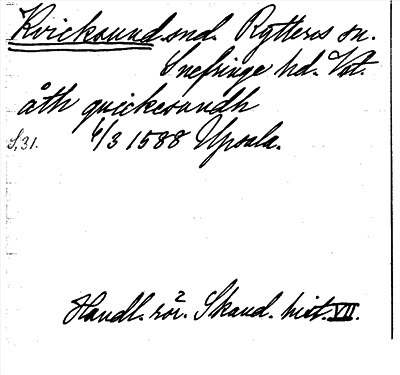 Kvicksund snd. Rytterns sn.
Snefringe hd. Vstm.
åth quickesundh
S. 31. 6/3 1588 Upsala.
Handl. rör. Skand. hist. VII.